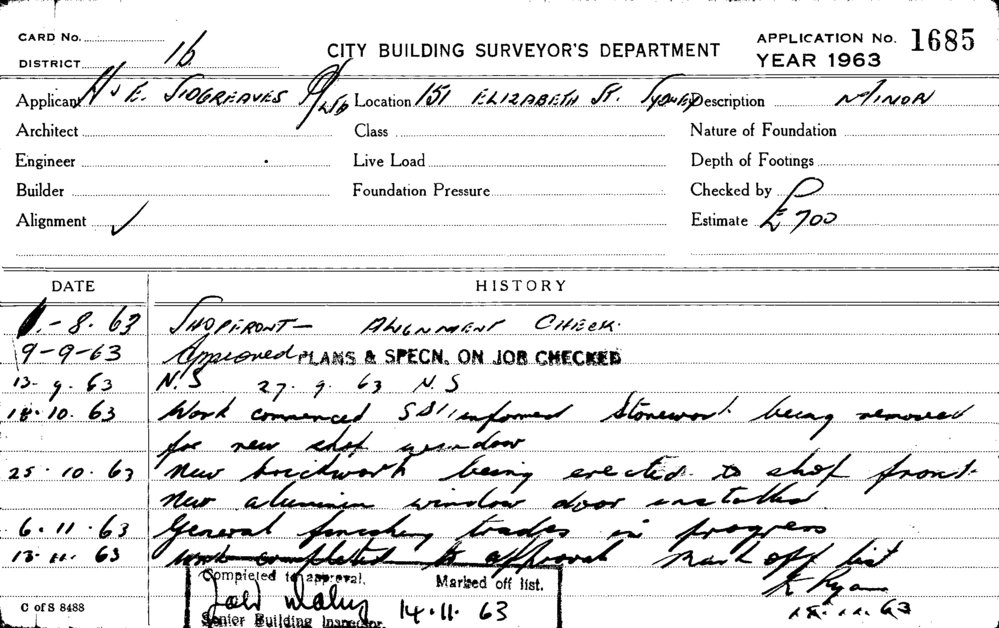 CARD No.
DISTRICT 16
CITY BUILDING SURVEYOR'S DEPARTMENT
APPLICATION No. 1685
YEAR 1963
Applicant H J E. SIDGREAVES P/LTD Location 151 ELIZABETH ST. SYDNEY Description MINOR
Architect Class Nature of Foundation
Engineer Live Load Depth of Footings
Builder Foundation Pressure Checked by
Alignment ✓ Estimate £700
DATE HISTORY
-8.63 SHOPFRONT — ALIGNMENT CHECK.
9-9-63 Approved PLANS & SPECN. ON JOB CHECKED
13-9.63 N.S 27.9.63 N.S
18.10.63 Work commenced informed Stonework being removed
for new shop window
25.10.63 New brickwork being erected to shop front.
New aluminin window door installed
6.11.63 General finishing trades in progress
13.11.63 work completed to approval Mark off list
Completed to approval. Marked off list.
K Ryan
14.11.63
Senior Building Inspector.
C of S 8488